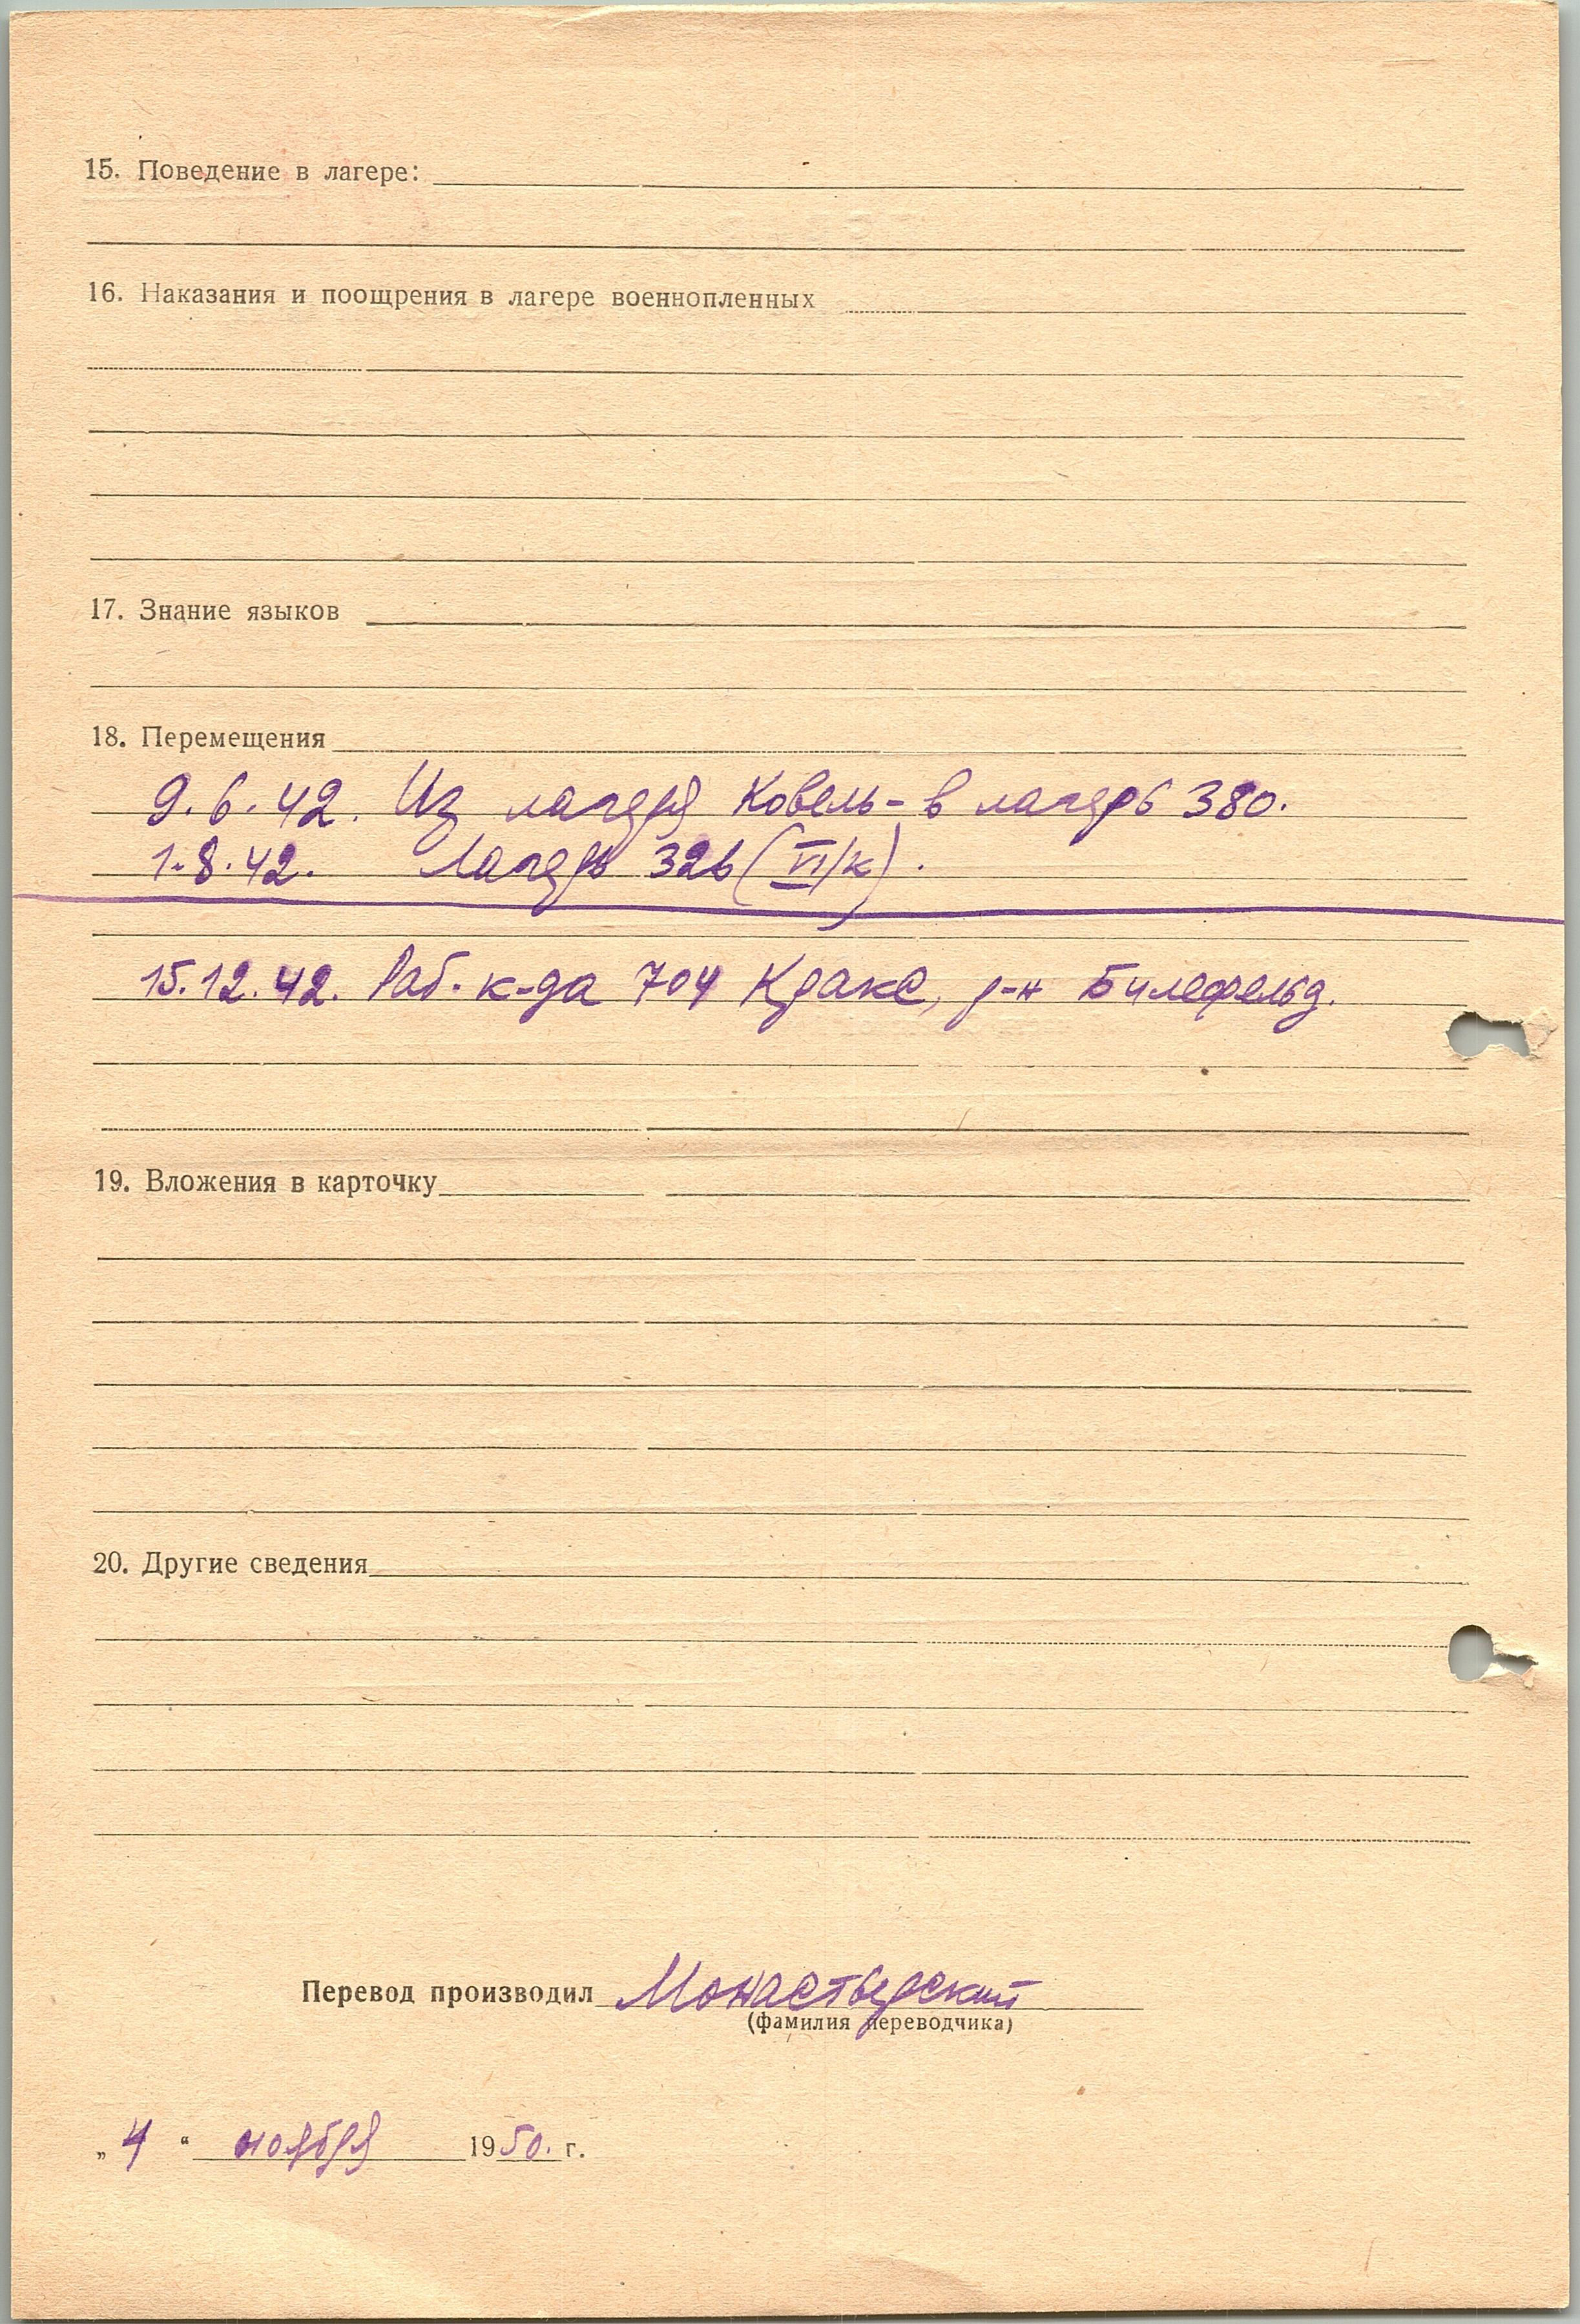 15. Поведение в лагере:
16. Наказания и поощрения в лагере военнопленных
17. Знание языков
18. Перемещения
9.6.42. Из лагеря Ковель - в лагерь 380.
1.8.42. Лагерь 326 (VI/к).
15.12.42. Раб. к-да 704 Краке, р-н Билефельд.
19. Вложения в карточку
20. Другие сведения
Перевод производил Монастырский
(фамилия переводчика)
„4“ ноября 1950. г.